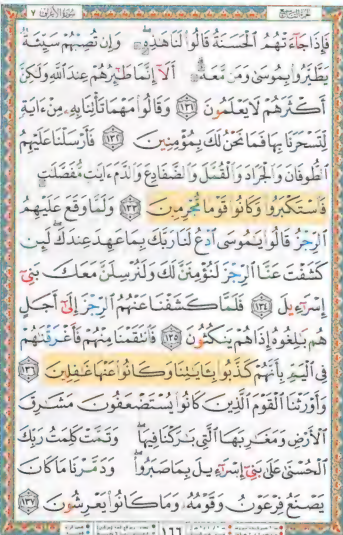 الجزء التاسع سورة الأعراف ٧
فَإِذَا جَآءَتْهُمُ ٱلْحَسَنَةُ قَالُوا۟ لَنَا هَـٰذِهِۦ ۖ وَإِن تُصِبْهُمْ سَيِّئَةٌ
يَطَّيَّرُوا۟ بِمُوسَىٰ وَمَن مَّعَهُۥٓ ۗ أَلَآ إِنَّمَا طَـٰٓئِرُهُمْ عِندَ ٱللَّهِ وَلَـٰكِنَّ
أَكْثَرَهُمْ لَا يَعْلَمُونَ ١٣١ وَقَالُوا۟ مَهْمَا تَأْتِنَا بِهِۦ مِنْ ءَايَةٍ
لِّتَسْحَرَنَا بِهَا فَمَا نَحْنُ لَكَ بِمُؤْمِنِينَ ١٣٢ فَأَرْسَلْنَا عَلَيْهِمُ
ٱلطُّوفَانَ وَٱلْجَرَادَ وَٱلْقُمَّلَ وَٱلضَّفَادِعَ وَٱلدَّمَ ءَايَـٰتٍ مُّفَصَّلَـٰتٍ
فَٱسْتَكْبَرُوا۟ وَكَانُوا۟ قَوْمًا مُّجْرِمِينَ ١٣٣ وَلَمَّا وَقَعَ عَلَيْهِمُ
ٱلرِّجْزُ قَالُوا۟ يَـٰمُوسَى ٱدْعُ لَنَا رَبَّكَ بِمَا عَهِدَ عِندَكَ ۖ لَئِن
كَشَفْتَ عَنَّا ٱلرِّجْزَ لَنُؤْمِنَنَّ لَكَ وَلَنُرْسِلَنَّ مَعَكَ بَنِىٓ
إِسْرَٰٓءِيلَ ١٣٤ فَلَمَّا كَشَفْنَا عَنْهُمُ ٱلرِّجْزَ إِلَىٰٓ أَجَلٍ
هُم بَـٰلِغُوهُ إِذَا هُمْ يَنكُثُونَ ١٣٥ فَٱنتَقَمْنَا مِنْهُمْ فَأَغْرَقْنَـٰهُمْ
فِى ٱلْيَمِّ بِأَنَّهُمْ كَذَّبُوا۟ بِـَٔايَـٰتِنَا وَكَانُوا۟ عَنْهَا غَـٰفِلِينَ ١٣٦
وَأَوْرَثْنَا ٱلْقَوْمَ ٱلَّذِينَ كَانُوا۟ يُسْتَضْعَفُونَ مَشَـٰرِقَ
ٱلْأَرْضِ وَمَغَـٰرِبَهَا ٱلَّتِى بَـٰرَكْنَا فِيهَا ۖ وَتَمَّتْ كَلِمَتُ رَبِّكَ
ٱلْحُسْنَىٰ عَلَىٰ بَنِىٓ إِسْرَٰٓءِيلَ بِمَا صَبَرُوا۟ ۖ وَدَمَّرْنَا مَا كَانَ
يَصْنَعُ فِرْعَوْنُ وَقَوْمُهُۥ وَمَا كَانُوا۟ يَعْرِشُونَ ١٣٧
١٦٦